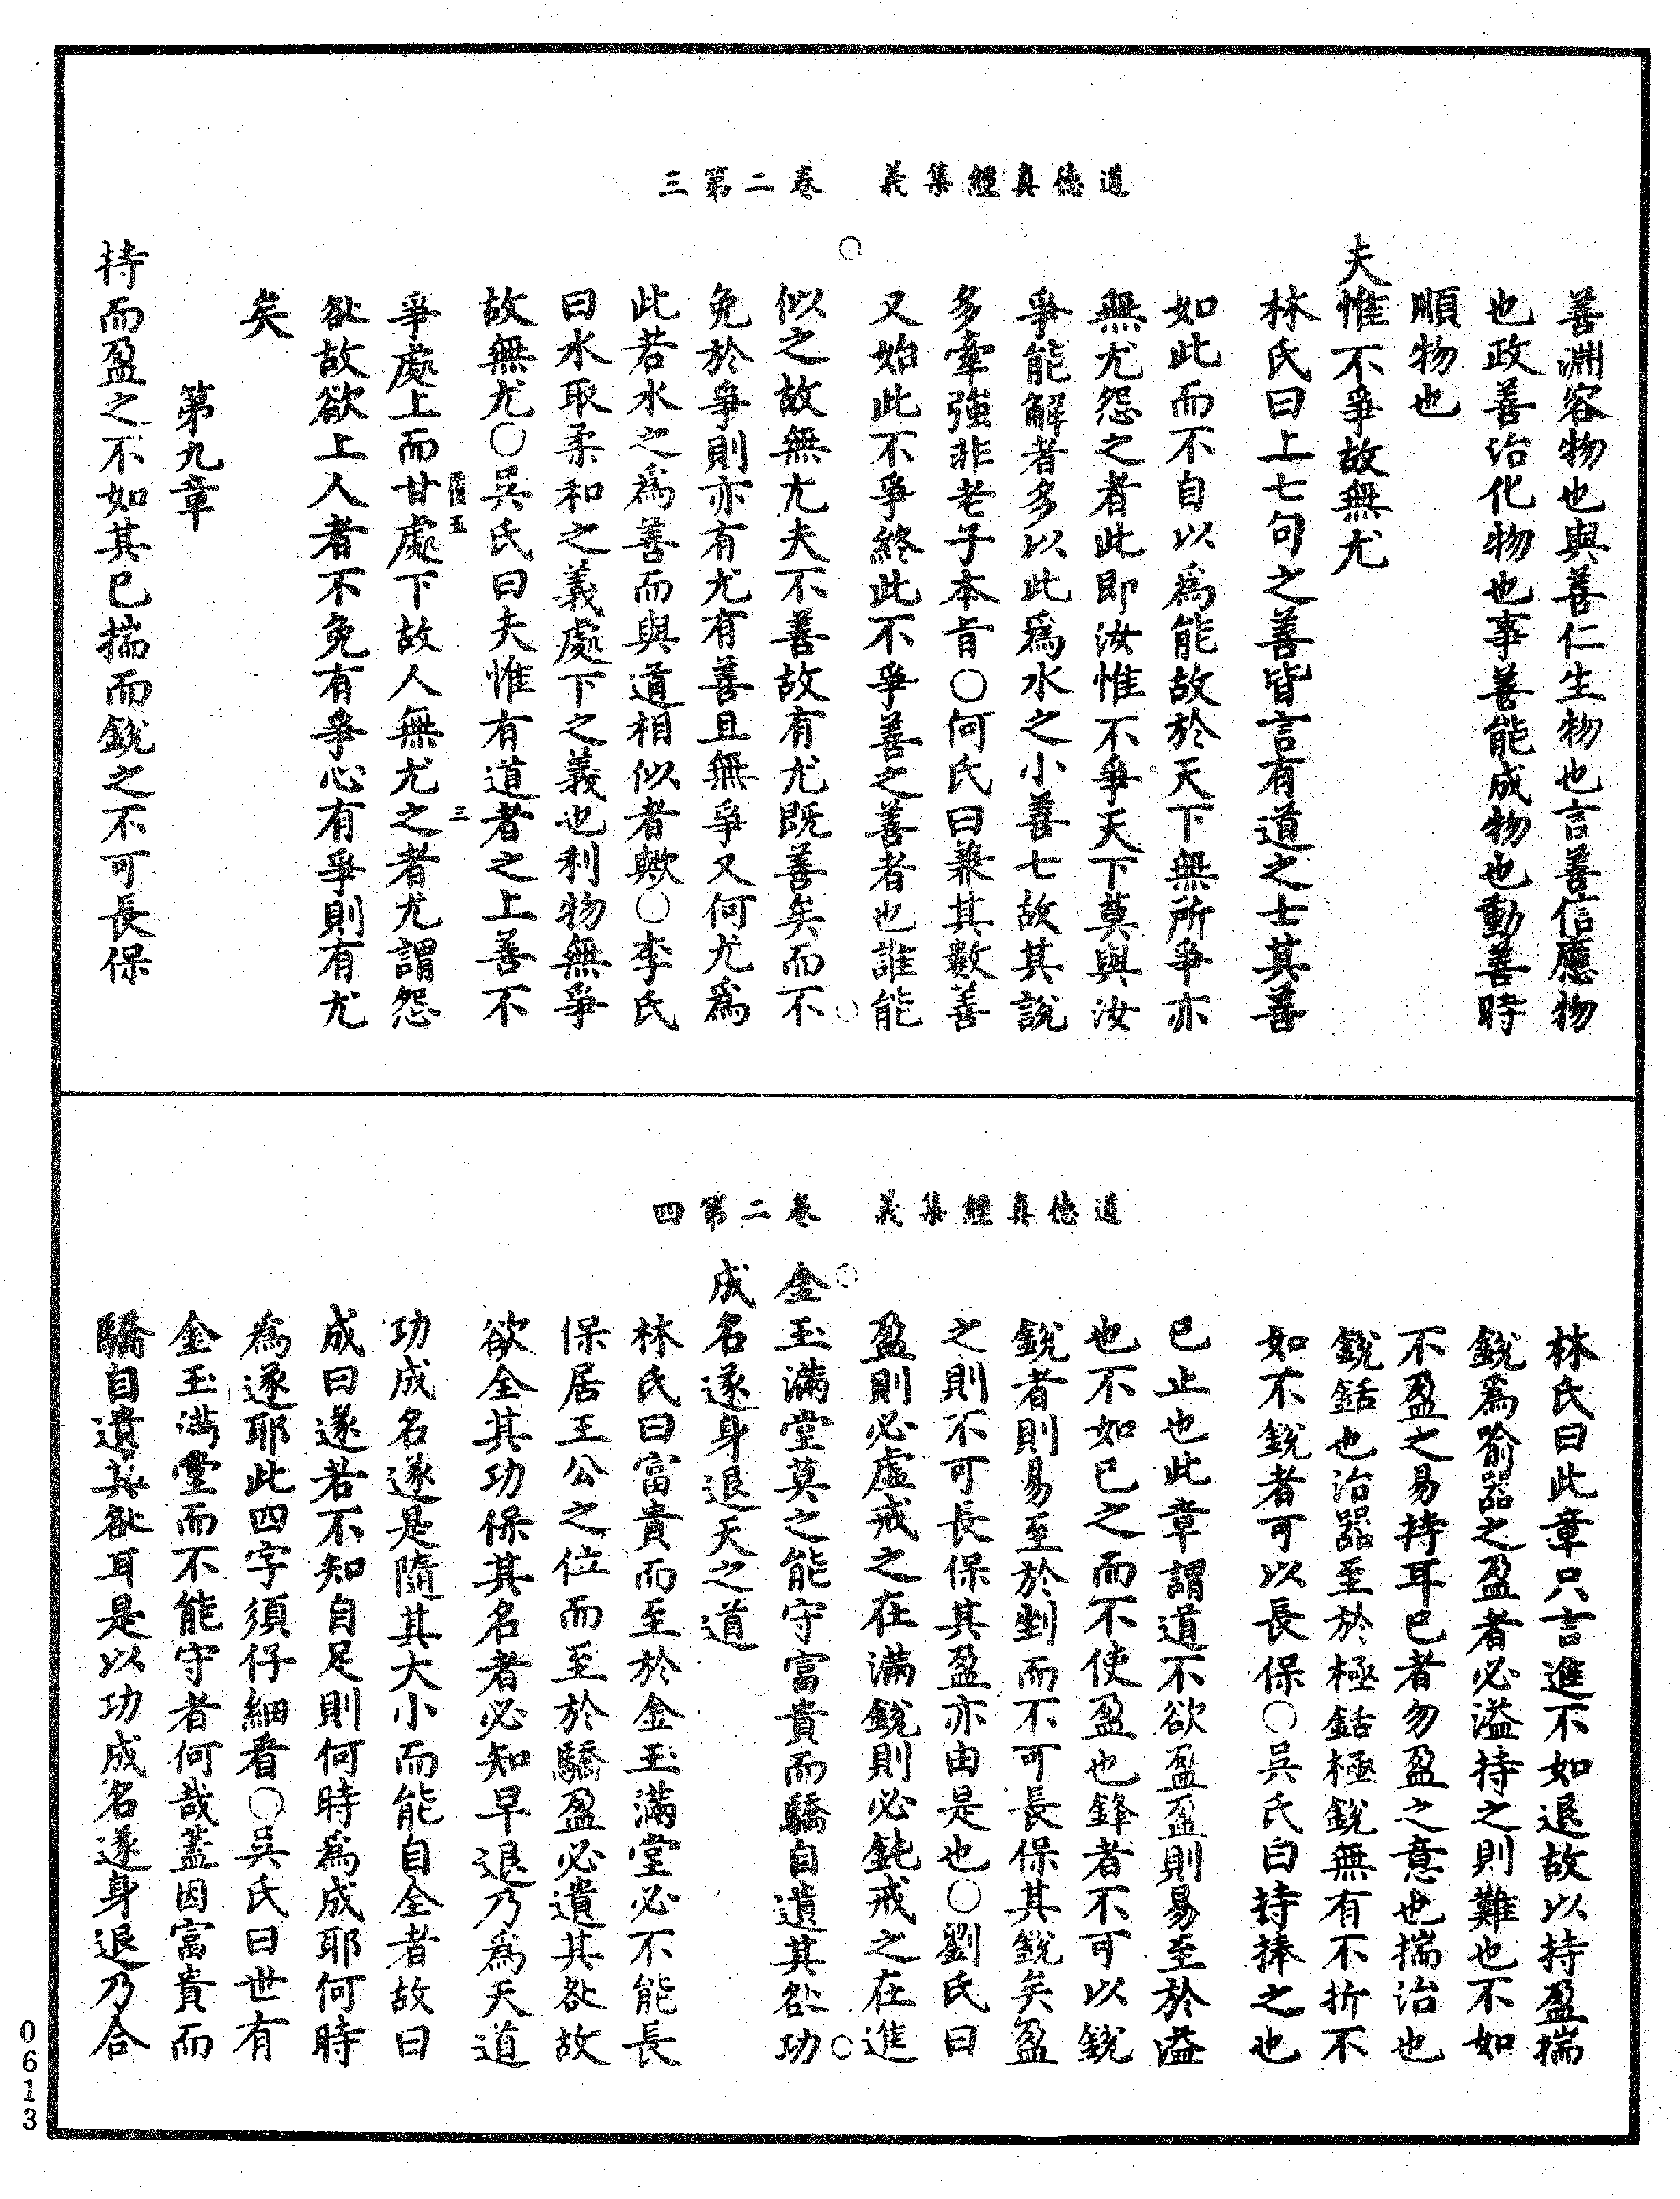 道德真經集義　卷二第三
善淵容物也與善仁生物也言善信應物
也政善治化物也事善能成物也動善時
順物也
夫惟不爭故無尤
林氏曰上七句之善皆言有道之士其善
如此而不自以爲能故於天下無所爭亦
無尤怨之者此即汝惟不爭天下莫與汝
爭能解者多以此爲水之小善七故其說
多牽強非老子本旨○何氏曰兼其數善
又始此不爭終此不爭善之善者也誰能
似之故無尤夫不善故有尤既善矣而不
免於爭則亦有尤有善且無爭又何尤爲
此若水之爲善而與道相似者歟○李氏
曰水取柔和之義處下之義也利物無爭
故無尤○吳氏曰夫惟有道者之上善不
三
爭處上而甘處下故人無尤之者尤謂怨
咎故欲上人者不免有爭心有爭則有尤
矣
第九章
持而盈之不如其已揣而銳之不可長保
道德真經集義　卷二第四
林氏曰此章只言進不如退故以持盈揣
銳爲喻器之盈者必溢持之則難也不如
不盈之易持耳已者勿盈之意也揣治也
銳銛也治器至於極銛極銳無有不折不
如不銳者可以長保○吳氏曰持捧之也
已止也此章謂道不欲盈盈則易至於溢
也不如已之而不使盈也鋒者不可以銳
銳者則易至於剉而不可長保其銳矣盈
之則不可長保其盈亦由是也○劉氏曰
盈則必虛戒之在滿銳則必鈍戒之在進
金玉滿堂莫之能守富貴而驕自遺其咎功
成名遂身退天之道
林氏曰富貴而至於金玉滿堂必不能長
保居王公之位而至於驕盈必遺其咎故
欲全其功保其名者必知早退乃爲天道
功成名遂是隨其大小而能自全者故曰
成曰遂若不知自足則何時爲成耶何時
爲遂耶此四字須仔細看○吳氏曰世有
金玉滿堂而不能守者何哉蓋因富貴而
驕自遺其咎耳是以功成名遂身退乃合
0613